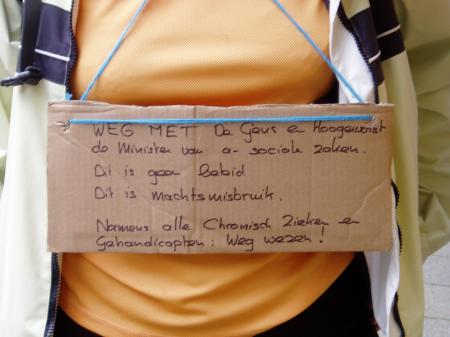 WEG MET De Geus en Hoogervorst
de Minister van a-sociale zaken.
Dit is geen beleid
Dit is machtsmisbruik.
Namens alle Chronisch Zieken en
Gehandicapten: Weg wezen!